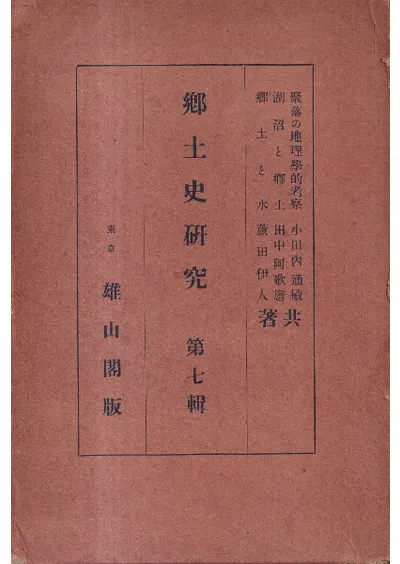 聚落の地理學的考察 小田内通敏
湖沼と郷土 田中阿歌麿
郷土と水 蘆田伊人
共著
鄕土史硏究 第七輯
東京 雄山閣版